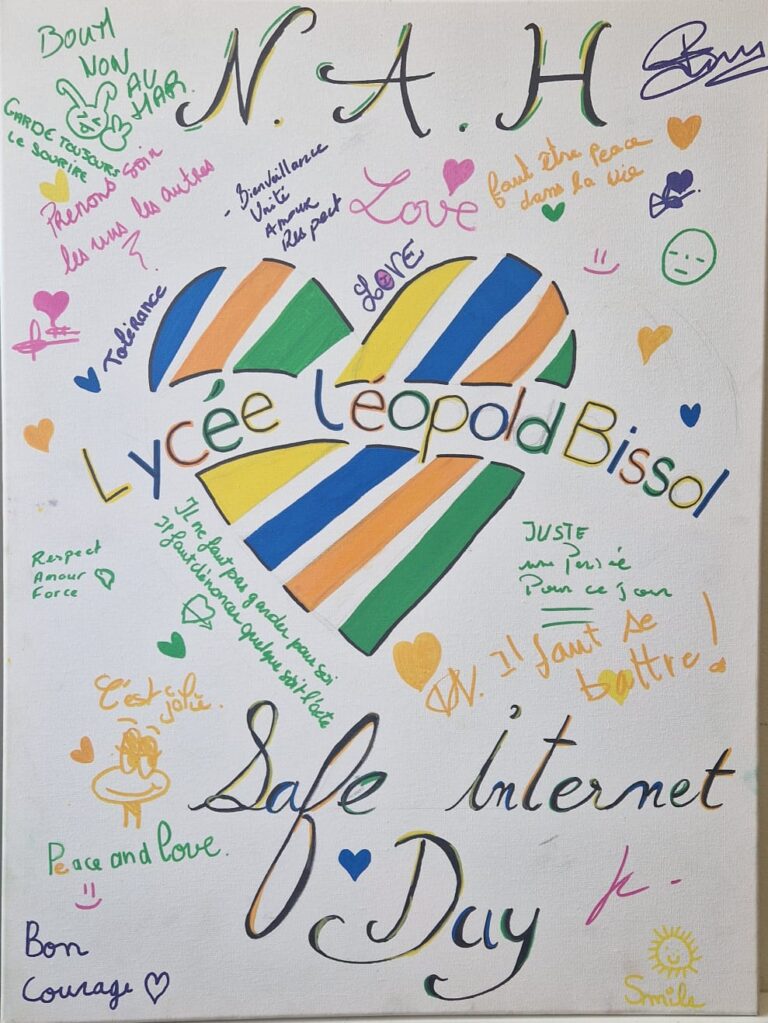 N.A.H
NON
AU
HAR.
GARDE TOUJOURS
LE SOURIRE
Prenons soin
les uns les autres
- Bienveillance
Unité
Amour
Respect
Love
faut être peace
dans la vie
LOVE
Tolérance
Lycée Léopold Bissol
IL ne faut pas garder pour soi
Il faut dénoncer quelque soit l'acte
Respect
Amour
Force
JUSTE
une
Pour ce jour
Il faut se
battre!
C'est
jolie.
Safe internet
Day
Peace and love.
Bon
Courage
Smile